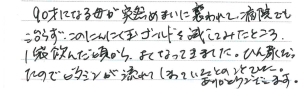 90才になる母が突然めまいに襲われて、病院でも
治らず、このにんにく玉ゴールドを試してみたところ、
1袋飲んだ頃から、よくなってきました。ひん尿だっ
たのでビタミンが流れてしまっていたとのことでした。
ありがとうございます。